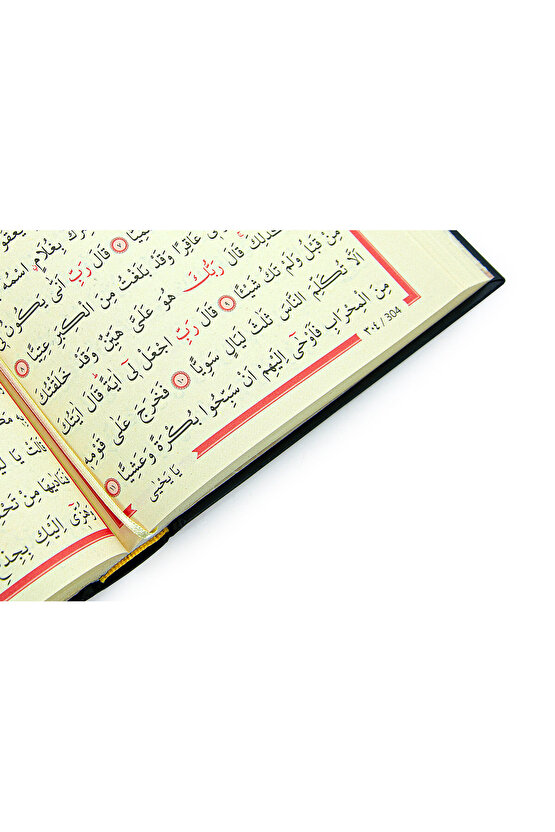 بِغُلَامٍ اسْمُهُ
قَالَ رَبِّ اَنّٰى يَكُونُ لِى
عَاقِرًا وَقَدْ بَلَغْتُ مِنَ الْكِبَرِ عِتِيًّا ٨
كَذٰلِكَ قَالَ رَبُّكَ هُوَ عَلَىَّ هَيِّنٌ وَقَدْ خَلَقْتُكَ
مِنْ قَبْلُ وَلَمْ تَكُ شَيْئًا ٩ قَالَ رَبِّ اجْعَلْ لِىٓ اٰيَةً قَالَ اٰيَتُكَ
اَلَّا تُكَلِّمَ النَّاسَ ثَلٰثَ لَيَالٍ سَوِيًّا ١٠ فَخَرَجَ عَلٰى قَوْمِهٖ
مِنَ الْمِحْرَابِ فَاَوْحٰٓى اِلَيْهِمْ اَنْ سَبِّحُوا بُكْرَةً وَعَشِيًّا ١١
يَا يَحْيٰى
٣٠٤ / 304
قَالَتْ يَا
فَنَادٰيهَا مِنْ
وَهُزّٖىٓ اِلَيْكِ بِجِذْعِ